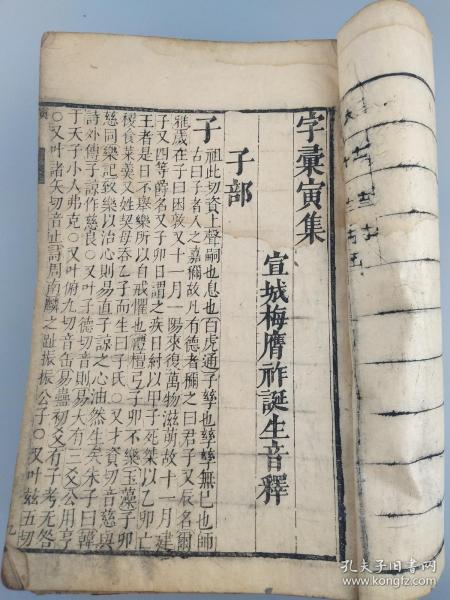 字彙寅集
宣城梅膺祚誕生音釋
子部
子
祖此切資上聲嗣也息也白虎通子孳也孳孳無已也師
古曰子者人之嘉稱故凡有德者稱之曰君子又辰名爾
雅歲在子曰困敦又十一月一陽來復萬物滋萌故十一月建
子又四等爵名又子卯日謂之疾日紂以甲子死桀以乙卯亡
王者是日不舉樂所以自戒懼也禮檀弓子卯不樂玉藻子卯
稷食菜羹又姓契母吞乙子而生曰子氏○又才資切音慈與
慈同樂記致樂以治心則易直子諒之心油然生矣朱子曰韓
詩外傳子諒作慈良○又叶子德切音則易大有三爻公用亨
于天子小人弗克○又叶俯九切音缶易蠱初爻有子考无咎
○又叶諸矢切音止詩周南麟之趾振振公子○又叶兹五切
孔夫子旧书网
www.kongfz.com